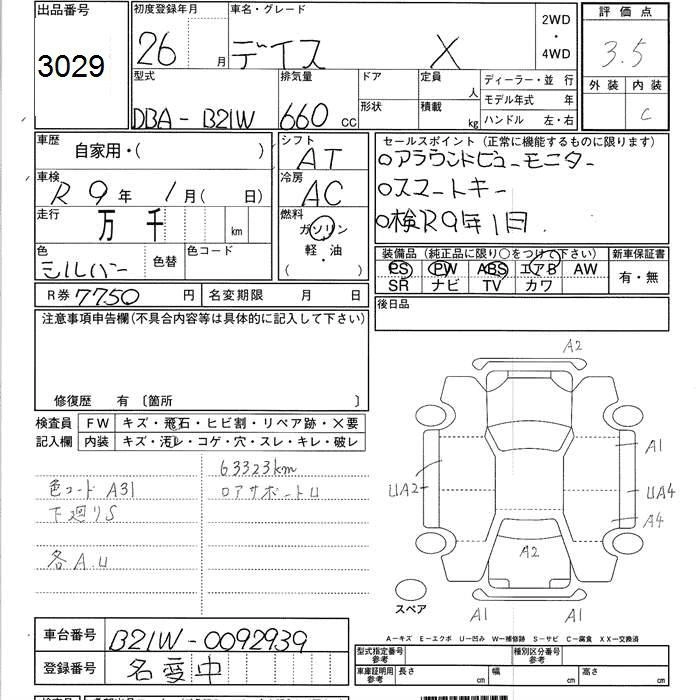 出品番号
3029
初度登録年月
26 月
車名・グレード
デイズ X
2WD
・
4WD
評価点
3.5
外装 内装
C
型式
DBA-B21W
排気量
660 cc
ドア
形状
定員 人
積載 kg
ディーラー・並行
モデル年式 年
ハンドル 左・右
車歴
自家用・( )
シフト
AT
車検
R9年 1月( 日)
冷房
AC
走行
万 千 km
燃料
ガソリン
軽・油
( ・ )
色
シルバー
色替
色コード
セールスポイント (正常に機能するものに限ります)
○アラウンドビューモニター
○スマートキー
○検R9年1月
装備品 (純正品に限り○をつけて下さい)
PS PW ABS エアB AW
SR ナビ TV カワ
新車保証書
有・無
R券 7750 円
名変期限 月 日
後日品
注意事項申告欄(不具合内容等は具体的に記入して下さい)
修復歴 有 〔箇所 〕
検査員
記入欄
FW キズ・飛石・ヒビ割・リペア跡・×要
内装 キズ・汚レ・コゲ・穴・スレ・キレ・破レ
63323km
色コード A31
ロアサポートU
下廻りS
各A.U
A2
A1
UA2
UA4
A4
A2
スペア
A1
A1
車台番号
B21W-0092939
登録番号
名変中
A-キズ E-エクボ U-凹み W-補修跡 S-サビ C-腐食 XX-交換済
型式指定番号
参考
種別区分番号
参考
車庫証明用
参考
長さ cm
幅 cm
高さ cm